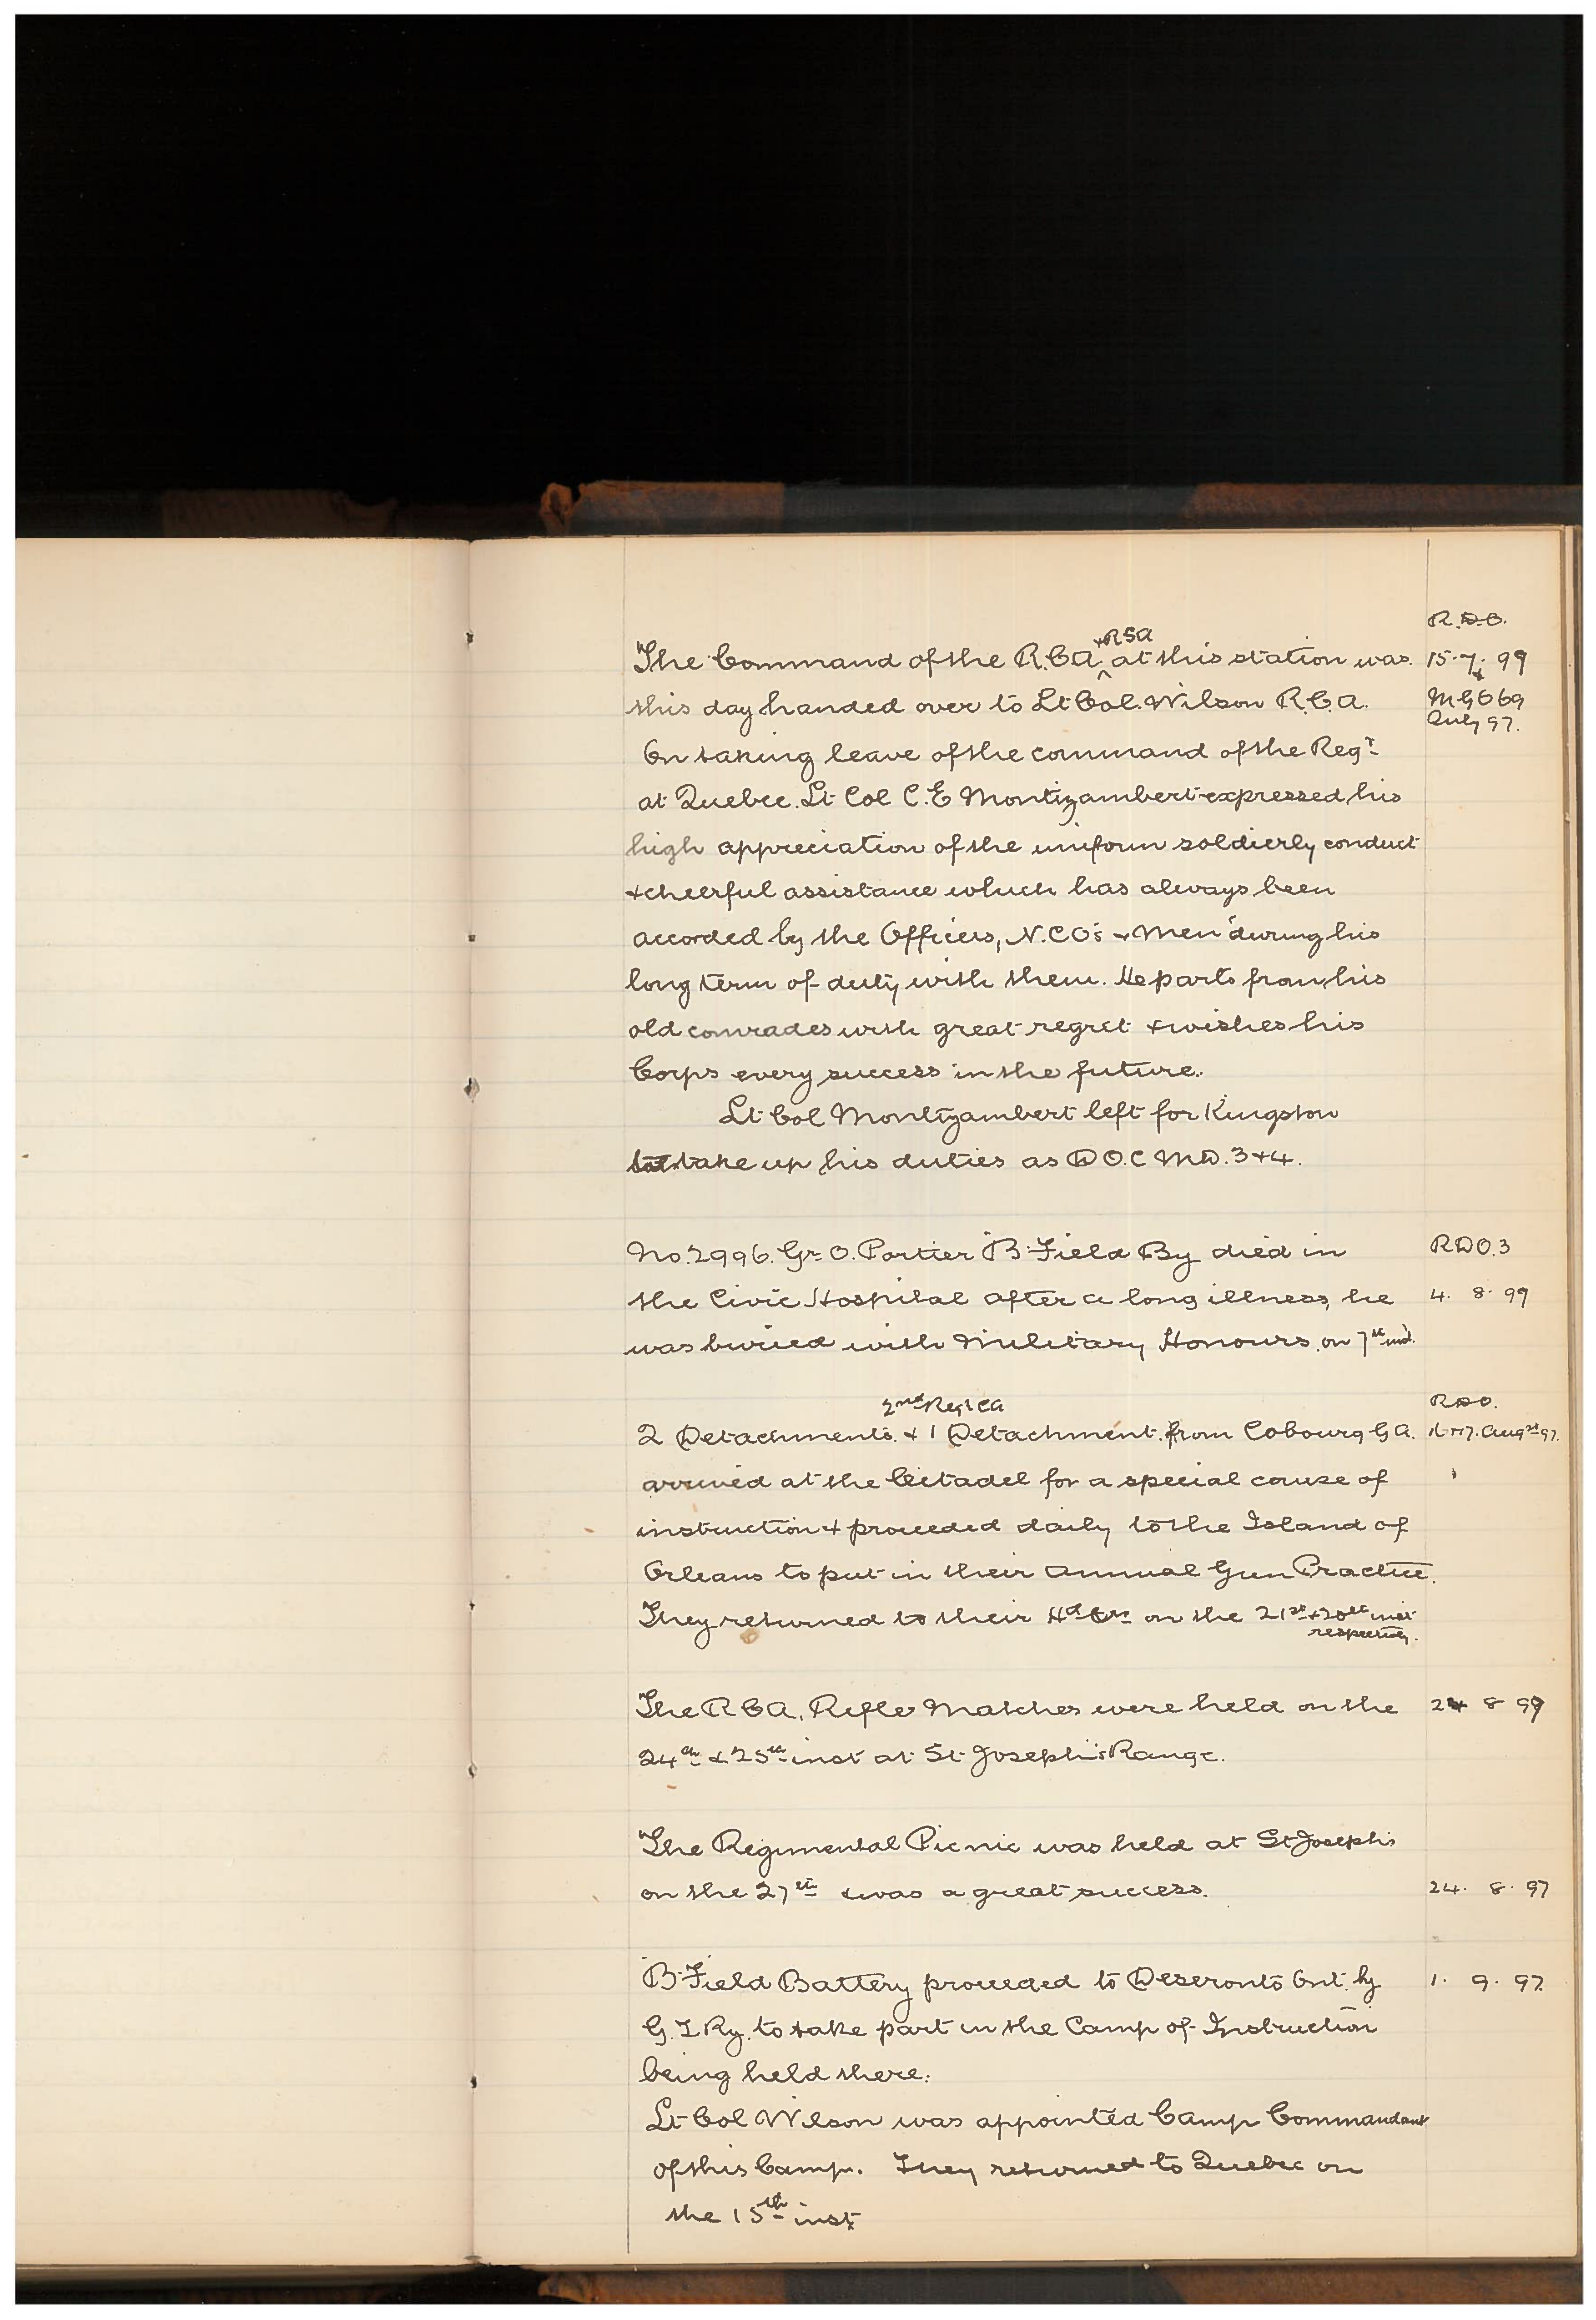 R.D.O.
The Command of the R.C.A. +RSA at this station was 15.7.99
this day handed over to Lt Col. Wilson R.C.A. M.G.O 69
July 97.
On taking leave of the command of the Regt
at Quebec. Lt Col C.E Montizambert expressed his
high appreciation of the uniform soldierly conduct
+ cheerful assistance which has always been
accorded by the Officers, N.C.O's + Men during his
long term of duty with them. He parts from his
old comrades with great regret + wishes his
Corps every success in the future.
Lt Col Montizambert left for Kingston
to take up his duties as D O.C M.D. 3+4.
No. 2996. Gr. O. Portier "B" Field By died in RDO.3
the Civic Hospital after a long illness, he 4. 8. 99
was buried with Military Honours on 7th inst.
2nd Regt CA RDO.
2 Detachments + 1 Detachment from Cobourg G A. 17. Augst 97.
arrived at the Citadel for a special course of
instruction + proceeded daily to the Island of
Orleans to put in their Annual Gun Practice.
They returned to their Hd Qrs on the 21st + 20th inst
respectively.
The R C A, Rifle Matches were held on the 24 8 99
24th & 25th inst at St Joseph's Range.
The Regimental Picnic was held at St Joseph's
on the 27th & was a great success. 24. 8. 97
"B" Field Battery proceeded to Deseronto Ont. by 1. 9. 97.
G. T. Ry. to take part in the Camp of Instruction
being held there.
Lt Col Wilson was appointed Camp Commandant
of this Camp. They returned to Quebec on
the 15th inst